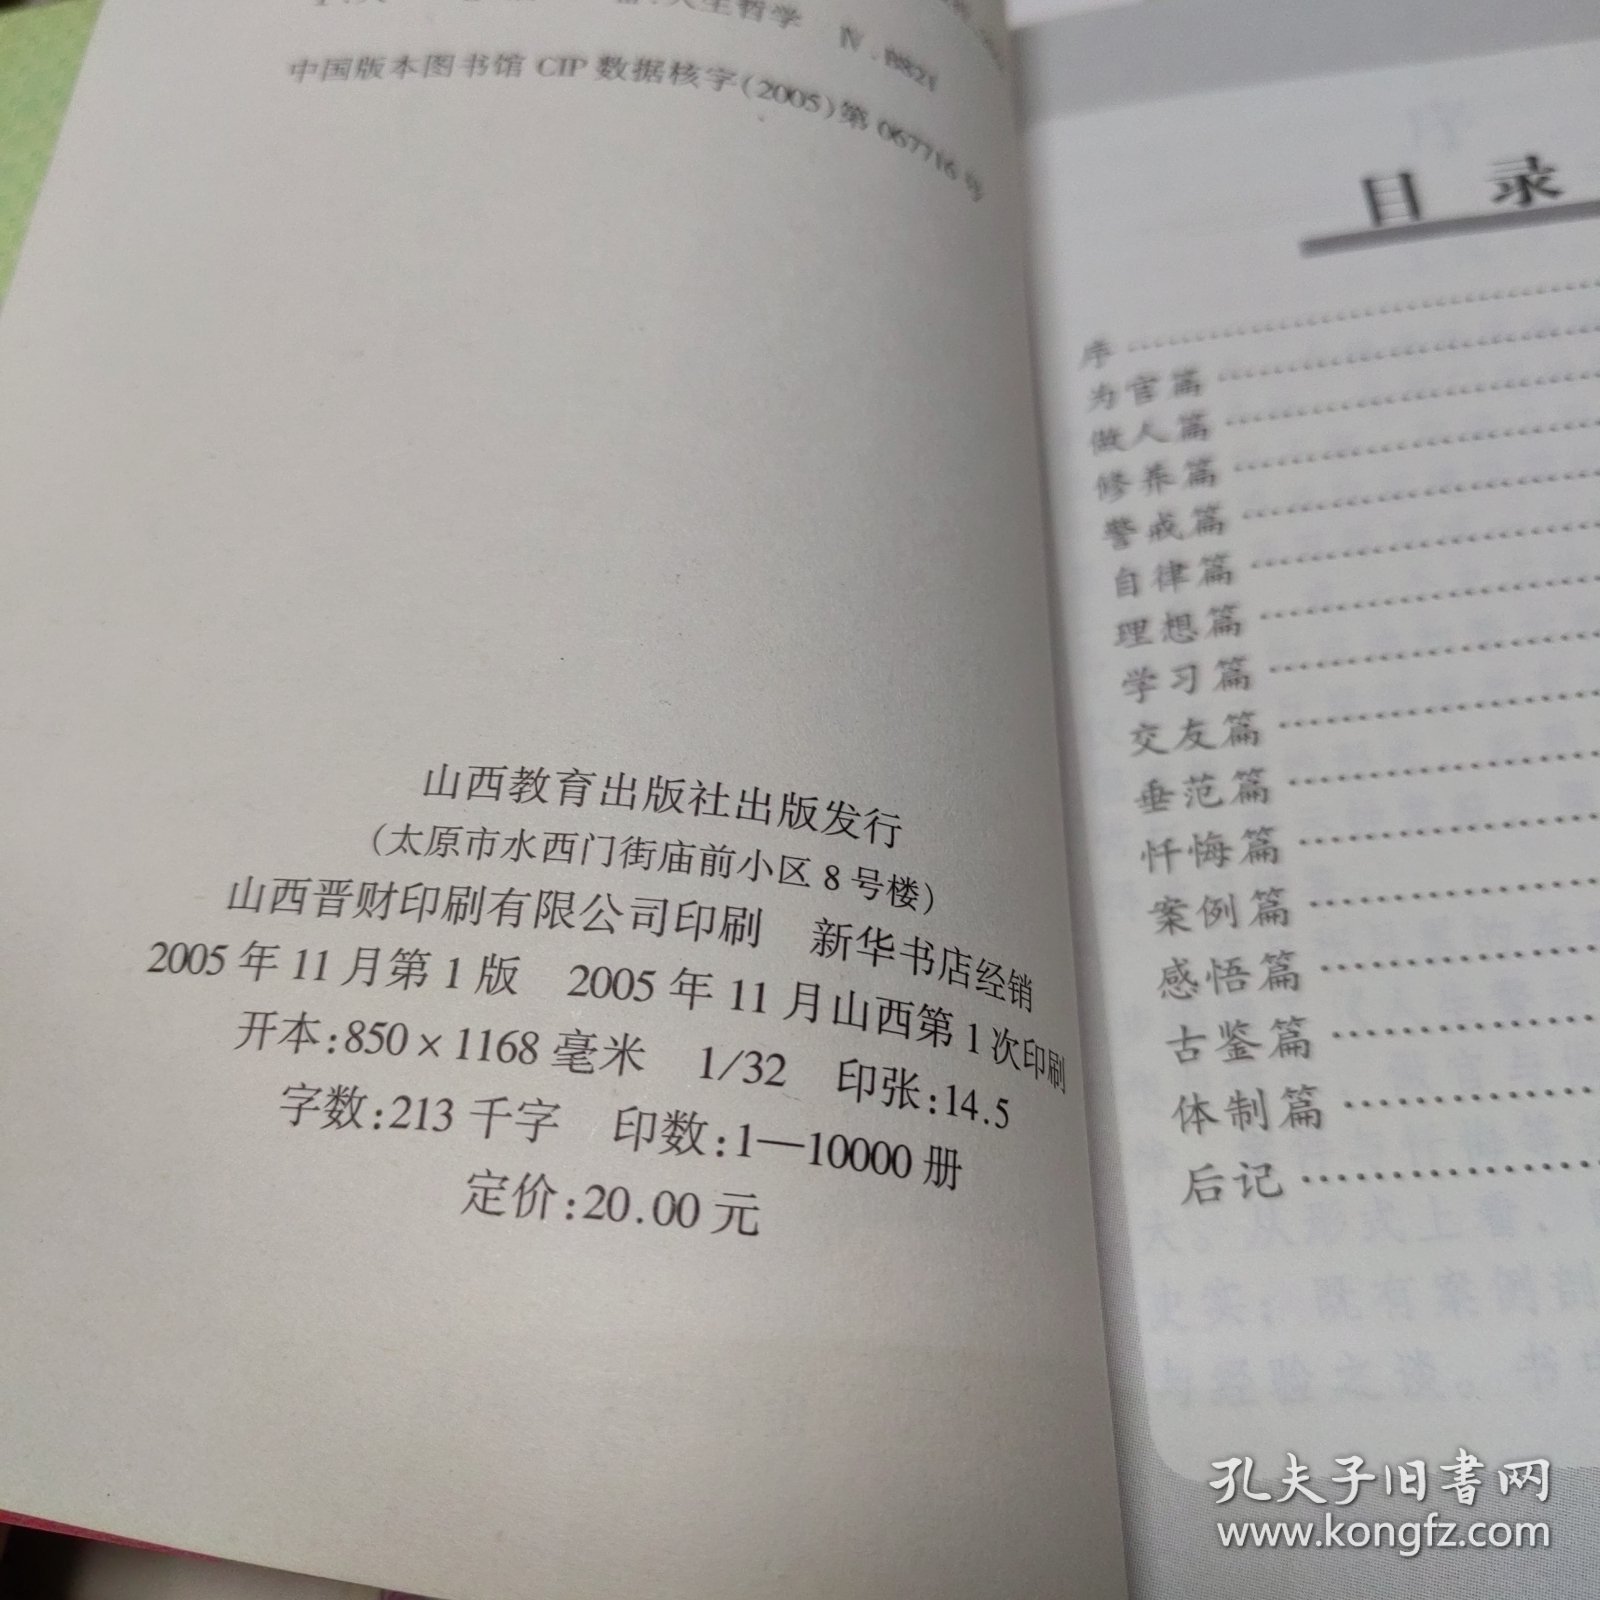 人生哲学 Ⅳ.B821
中国版本图书馆 CIP 数据核字(2005)第 067716 号
山西教育出版社出版发行
(太原市水西门街庙前小区 8 号楼)
山西晋财印刷有限公司印刷 新华书店经销
2005 年 11 月第 1 版 2005 年 11 月山西第 1 次印刷
开本:850×1168 毫米 1/32 印张:14.5
字数:213 千字 印数:1—10000 册
定价:20.00 元
目 录
序
为官篇
做人篇
修养篇
警戒篇
自律篇
理想篇
学习篇
交友篇
垂范篇
忏悔篇
案例篇
感悟篇
古鉴篇
体制篇
后记
孔夫子旧书网
www.kongfz.com